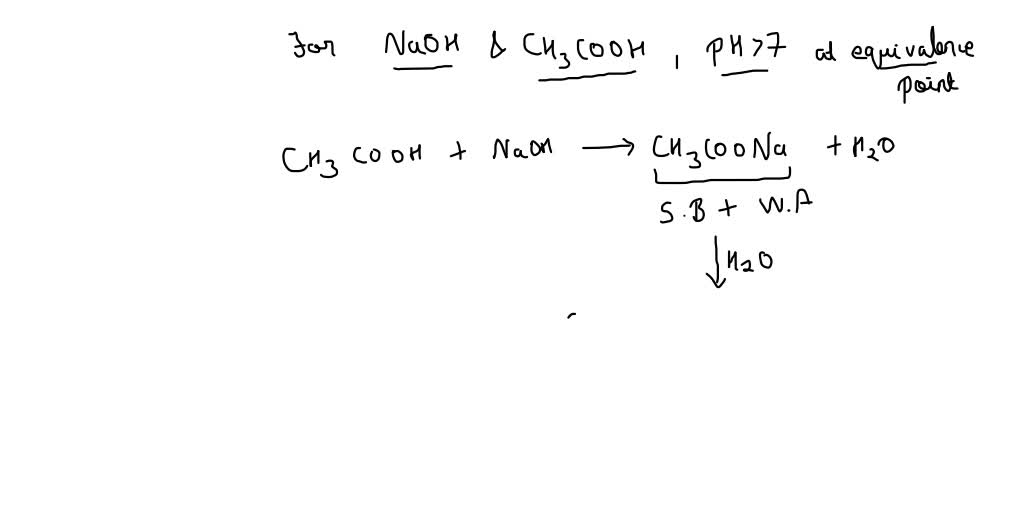 For NaOH & CH₃COOH, pH>7 at equivalence
point
CH₃COOH + NaOH → CH₃COONa + H₂O
S.B + W.A
↓ H₂O